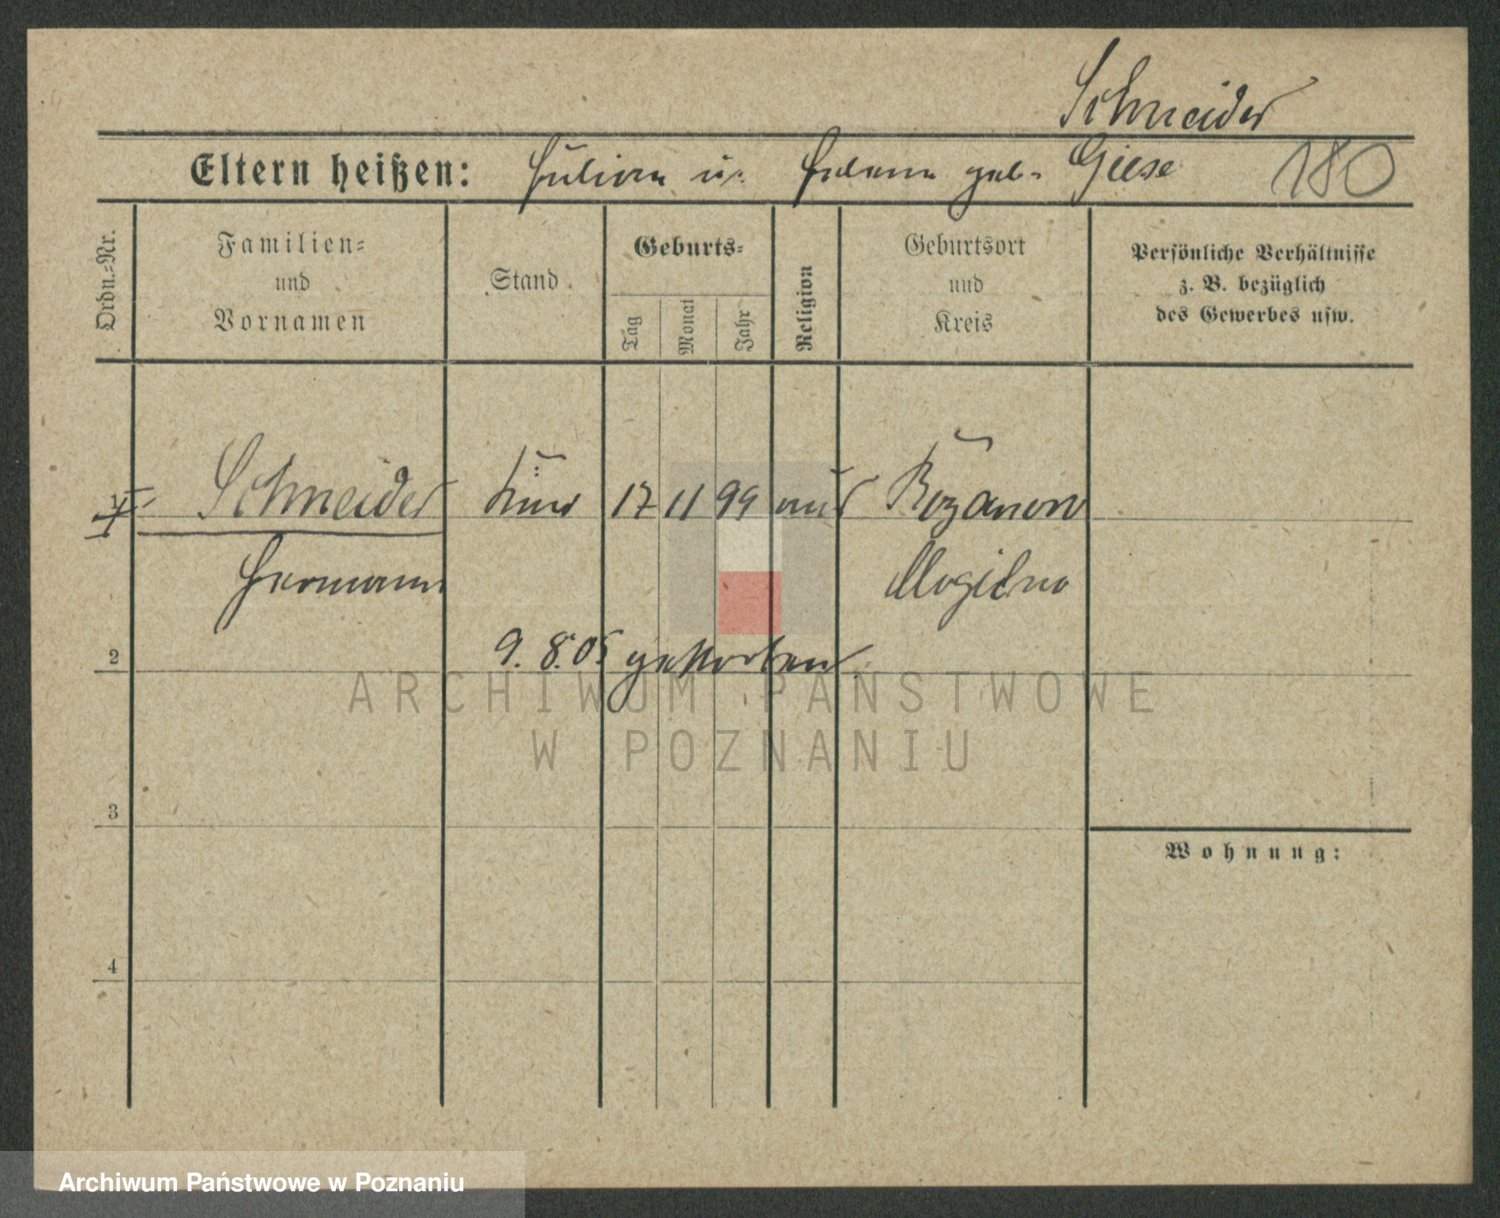 Schneider
Eltern heißen: Julian u. Helene geb. Giese 180
Ordn.-Nr.
Familien-
und
Vornamen
Stand
Geburts-
Tag
Monat
Jahr
Religion
Geburtsort
und
Kreis
Persönliche Verhältnisse
z. B. bezüglich
des Gewerbes usw.
Schneider 17 11 99
Hermann Mogilno
2 9. 8. 05 gestorben
ARCHIWUM PAŃSTWOWE
W POZNANIU
3
Wohnung:
4
Archiwum Państwowe w Poznaniu